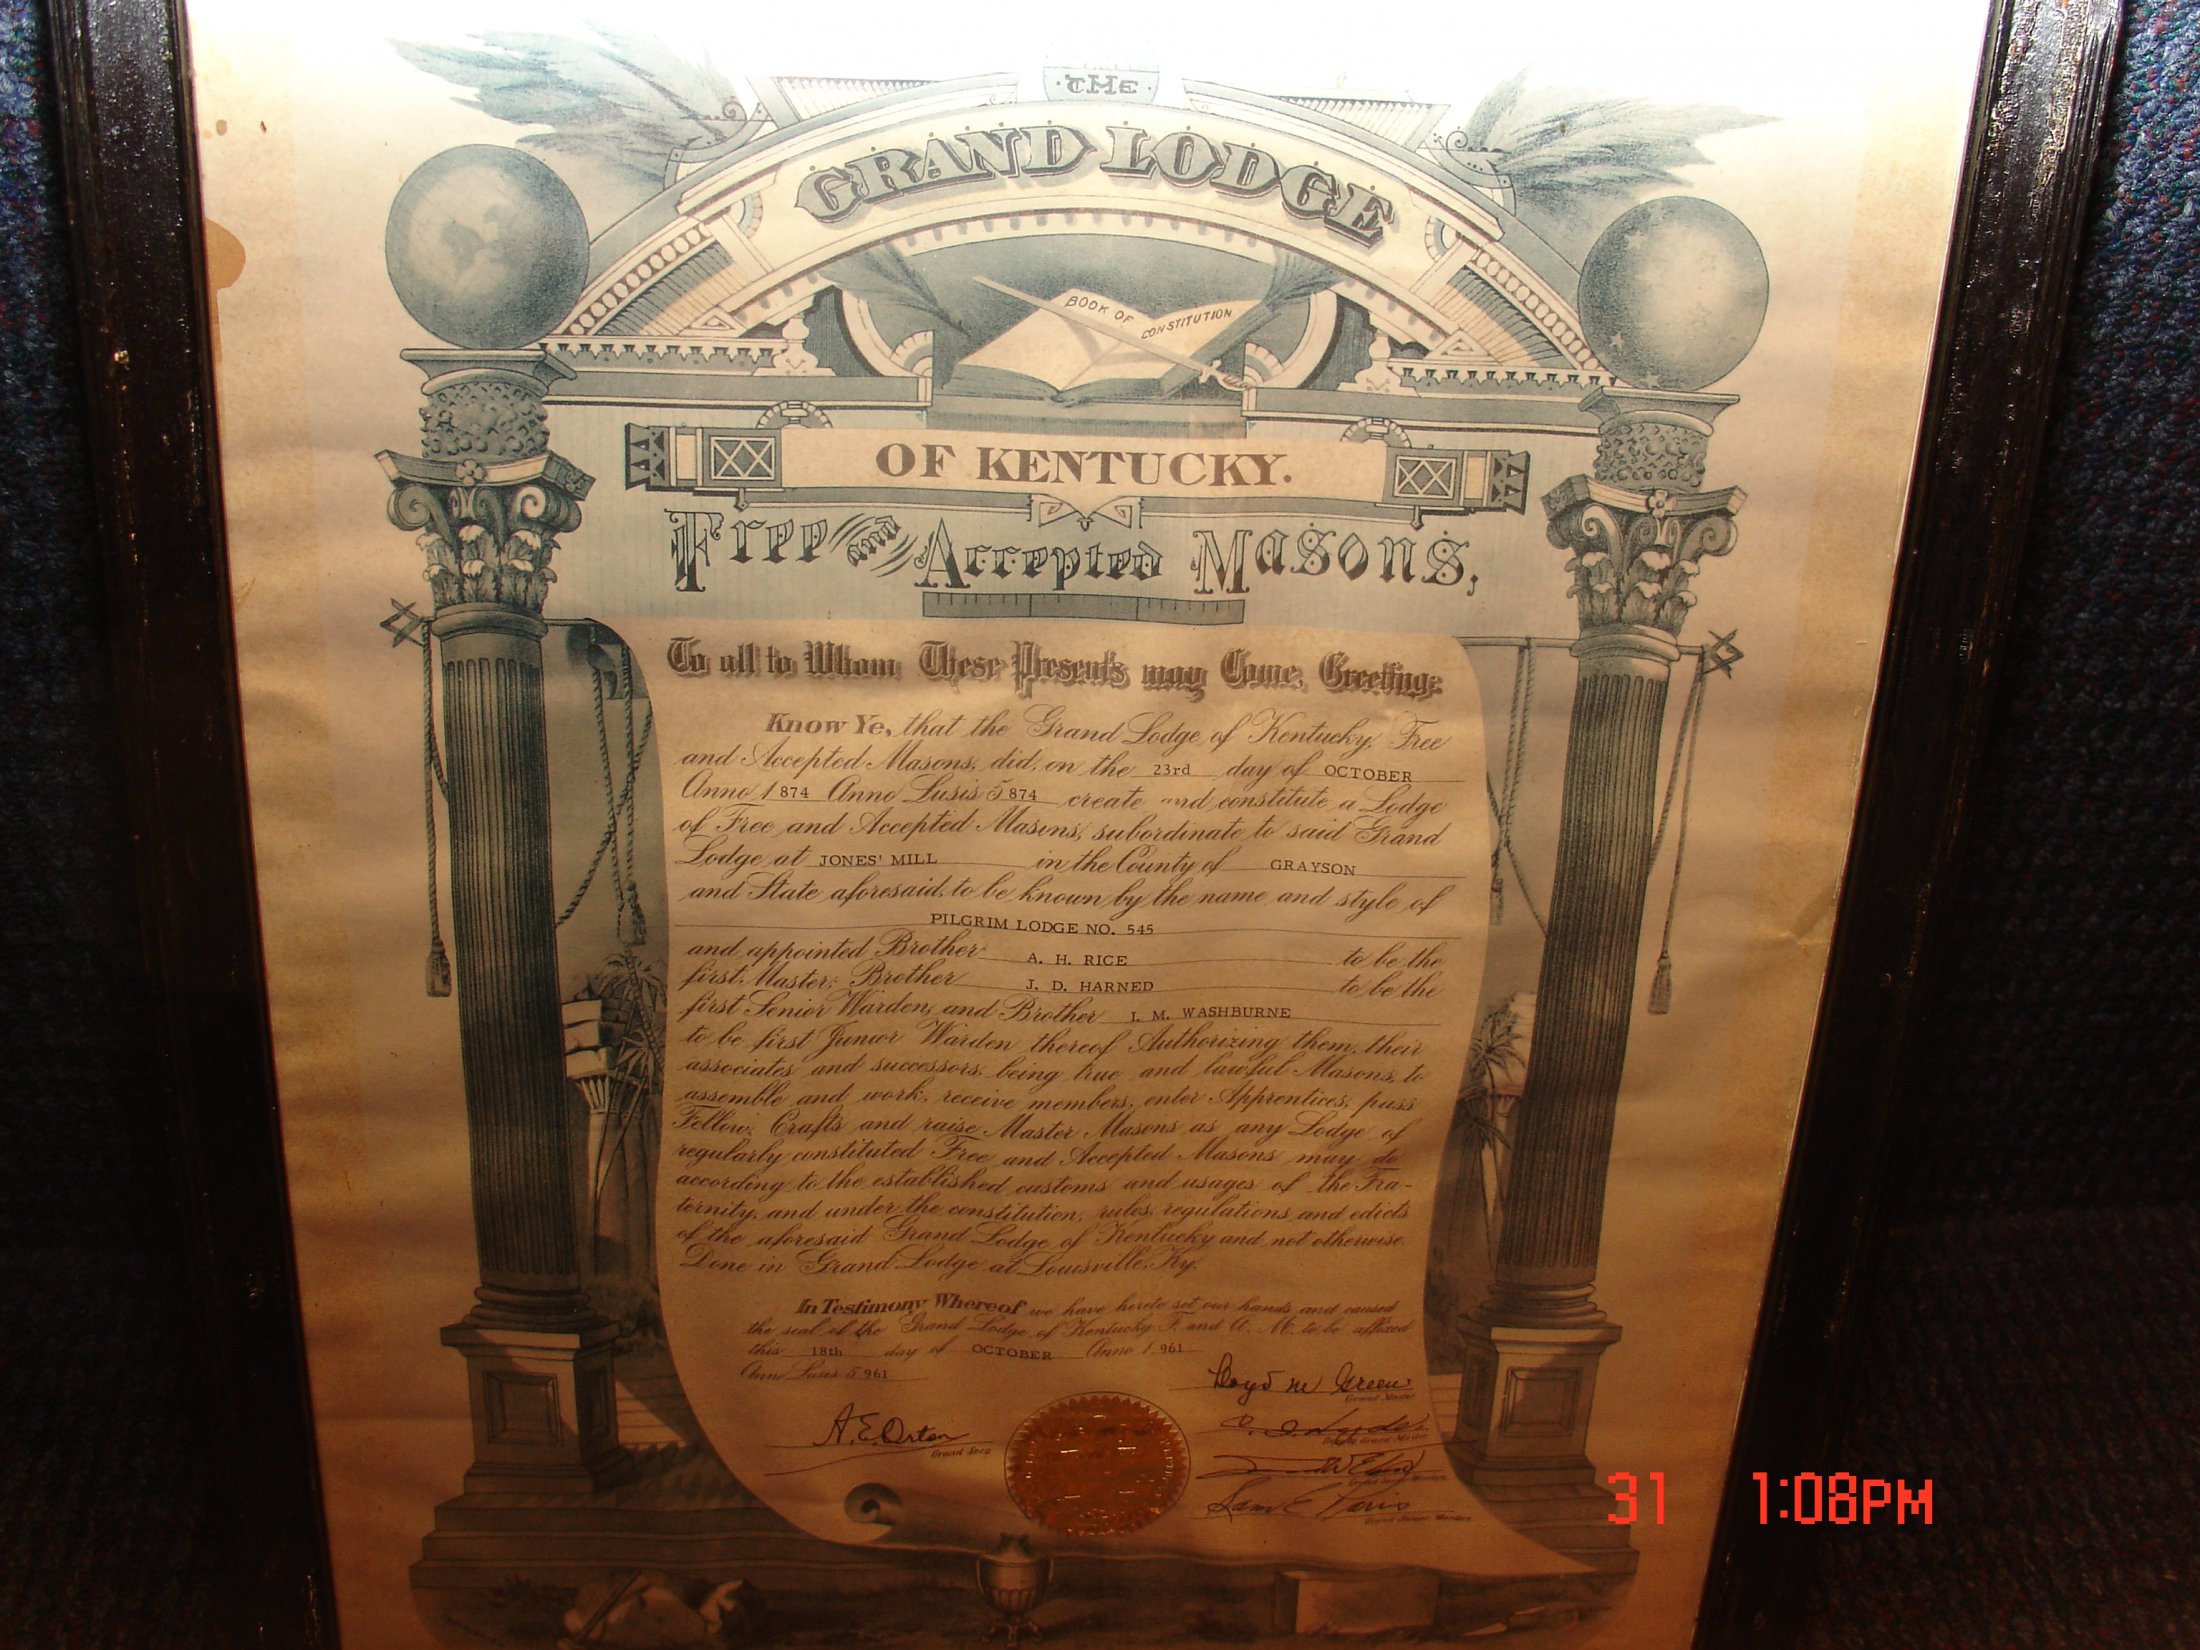 THE
GRAND LODGE
BOOK OF CONSTITUTION
OF KENTUCKY.
Free and Accepted Masons,
To all to Whom These Presents may Come, Greeting:
Know Ye, that the Grand Lodge of Kentucky, Free
and Accepted Masons, did, on the 23rd day of OCTOBER
Anno 1874 Anno Lusis 5874 create and constitute a Lodge
of Free and Accepted Masons, subordinate to said Grand
Lodge at JONES' MILL in the County of GRAYSON
and State aforesaid, to be known by the name and style of
PILGRIM LODGE NO. 545
and appointed Brother A. H. RICE to be the
first Master; Brother J. D. HARNED to be the
first Senior Warden, and Brother I. M. WASHBURNE
to be first Junior Warden thereof Authorizing them, their
associates and successors, being true and lawful Masons, to
assemble and work, receive members, enter Apprentices, pass
Fellow Crafts and raise Master Masons as any Lodge of
regularly constituted Free and Accepted Masons may do
according to the established customs and usages of the Fra-
ternity, and under the constitution, rules, regulations and edicts
of the aforesaid Grand Lodge of Kentucky and not otherwise
Done in Grand Lodge at Louisville, Ky.
In Testimony Whereof we have hereto set our hands and caused
the seal of the Grand Lodge of Kentucky F. and A. M. to be affixed
this 18th day of OCTOBER Anno 1961
Anno Lusis 5961
Lloyd M Green
Grand Master
Deputy Grand Master
A. E. Orton
Grand Secy
Grand Senior Warden
Sam E Paris
Grand Junior Warden
31 1:08PM